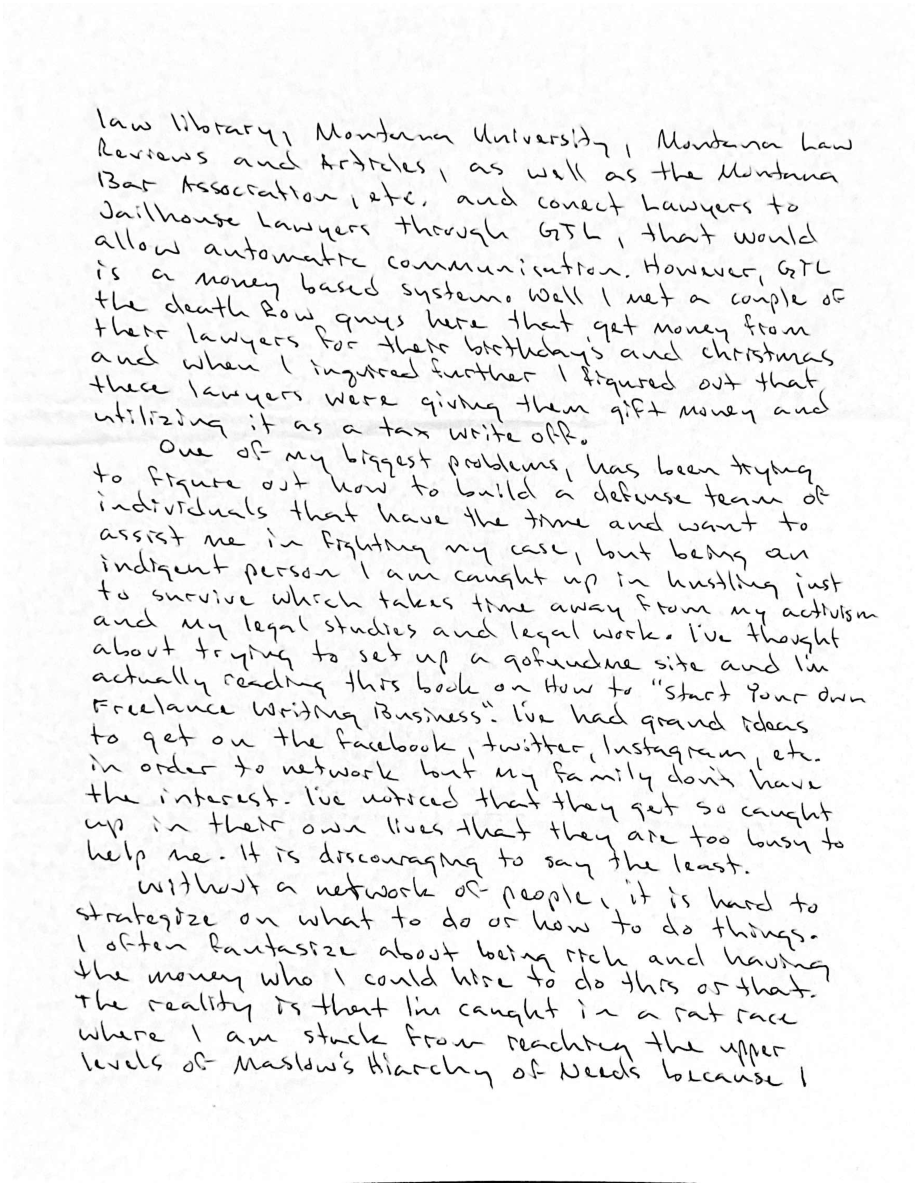 law library, Montana University, Montana Law
Reviews and Articles, as well as the Montana
Bar Association, etc. and conect Lawyers to
Jailhouse Lawyers through GTL, that would
allow automatic communication. However, GTL
is a money based system. Well I met a couple of
the death Row guys here that get money from
their lawyers for their birthday's and christmas
and when I inquired further I figured out that
these lawyers were giving them gift money and
utilizing it as a tax write off.
One of my biggest problems, has been trying
to figure out how to build a defense team of
individuals that have the time and want to
assist me in fighting my case, but being an
indigent person I am caught up in hustling just
to survive which takes time away from my activism
and my legal studies and legal work. I've thought
about trying to set up a gofundme site and I'm
actually reading this book on How to "Start Your Own
Freelance Writing Business". I've had grand ideas
to get on the facebook, twitter, Instagram, etc.
in order to network but my family don't have
the interest. I've noticed that they get so caught
up in their own lives that they are too busy to
help me. It is discouraging to say the least.
Without a network of people, it is hard to
strategize on what to do or how to do things.
I often fantasize about being rich and having
the money who I could hire to do this or that.
The reality is that I'm caught in a rat race
where I am stuck from reaching the upper
levels of Maslow's Hiarchy of Needs because I